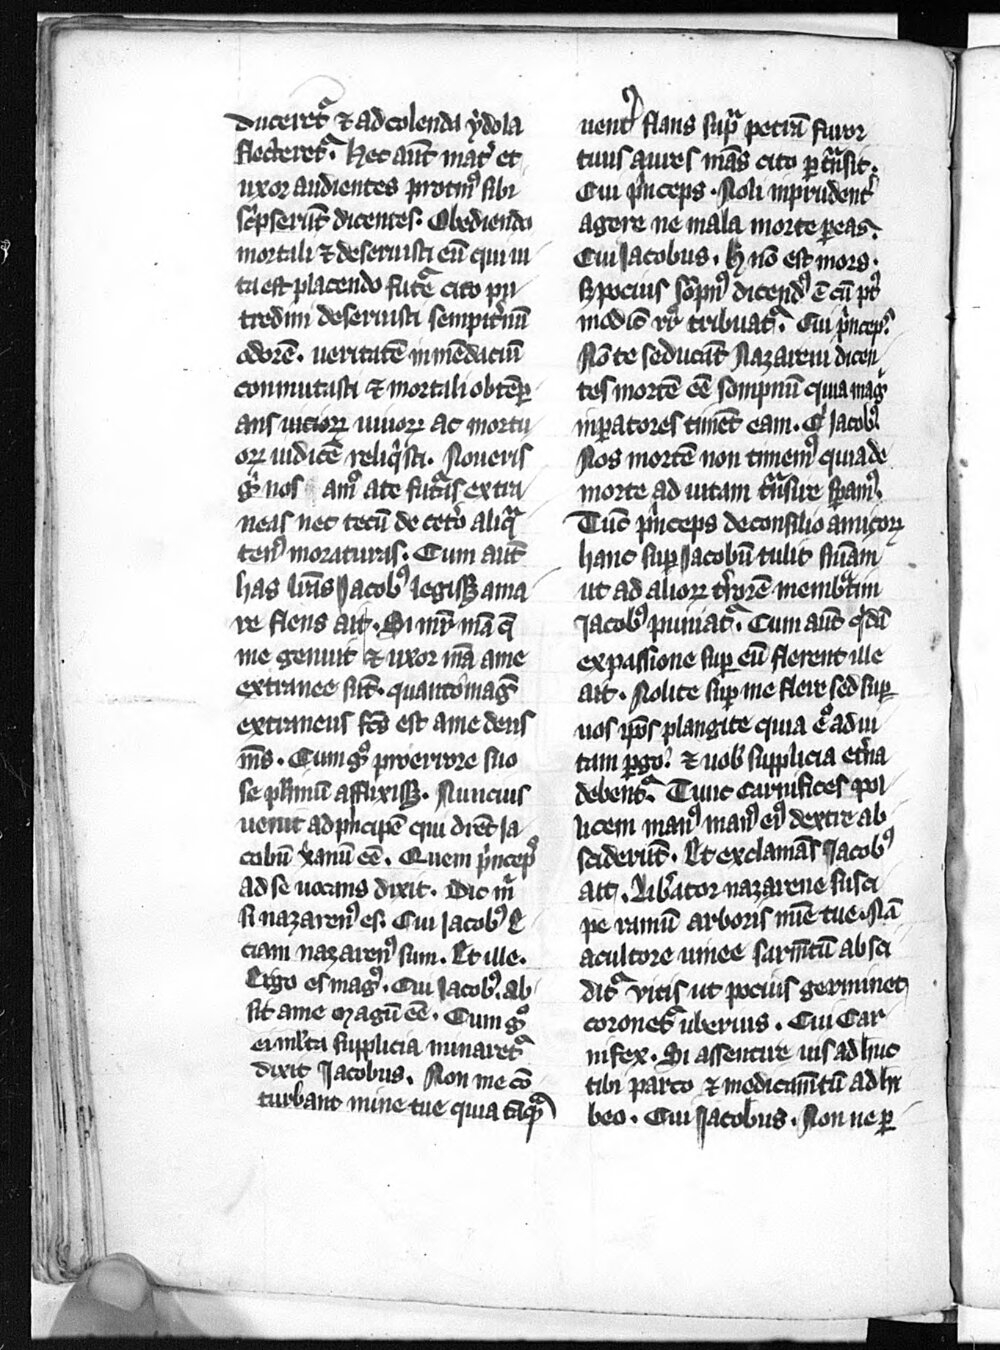 duceret᷑ ⁊ ad colenda ydola
flecteret᷑. Hec aūt mat̓ et
uxor audientes protinꝰ sibi
sc̓pserūt dicentes. Obediendo
mortali ⁊ deseruisti eū qui ui
ta est placendo fut᷑e cito pu
tredini deseruisti sempit̓nū
odorē. ueritatē in mēdaciū
conmutasti ⁊ mortali obtēꝑ
ans uiciorꝝ uiuorꝝ ac mortu
orꝝ iudicē reliq̓sti. Noueris
g̊ nos amꝰ a te fut᷑as extra
neas nec tecū de cet̓o aliq᷑
tenꝰ moraturas. Cum aūt
has lr̄as Jacobꝰ legisꝫ ama
re flens ait. Si mr̄ m̄a q̄
me genuit ⁊ uxor m̄a a me
extranee sūt. quanto mag̓
extraneus fc̄s est a me deus
m̄s. Cum gͦ pro errore suo
se plīmū afflixisꝫ. Nuncius
uenit ad pͥncipē qui dix̄t Ja
cobū x̄anū eē. Quem pͥncepꝰ
ad se uocans dixit. Dic m̓
si nazarenꝰ es. Cui Jacobꝰ E
ciam nazarenꝰ sum. Et ille.
Ergo es magꝰ. Cui Jacobꝰ. ab
sit a me magū eē. Cum gͦ
ei ml̓ta supplicia minaret᷑
dixit Jacobus. Non me cō
turbant mine tue quia tāq᷑
uentꝰ flans sup᷑ petrā furor
tuus aures m̄as cito ꝑt᷑nsit.
Cui pͥnceps. Noli inprudent̓
agere ne mala morte ꝑeas.
Cui Jacobus. H̓ nō est mors.
sꝫ pocius sōpnꝰ dicendꝰ ē cū pꝰ
modicū rͬ tribuat᷑. Cui pͥnceps.
Nō te seducāt Nazarei dicen
tes mortē eē sompnū quia mag̓
inꝑatores timēt eam. Cͥ Jacobꝰ
Nos mortē non timemꝰ quia de
morte ad uitam t᷑nsire sꝑamꝰ.
Tūc pͥnceps de consilio amicorꝝ
hanc suꝑ Jacobū tulit snīam
ut ad aliorꝝ t̓rorē membͣtim
Jacobꝰ puniat᷑. Cum aūt qͥdā
ex passione suꝑ eū flerent ille
ait. Nolite suꝑ me flere sed suꝑ
uos ip̄os plangite quia eͦ ad ui
tam ꝑgo. ⁊ uob̓ supplicia et̓na
debent᷑. Tunc carnifices pol
licem manꝰ manꝰ eiꝰ dextre ab
sciderūt. Et exclamās Jacobꝰ
ait. Lib̓ator nazarene susci
pe ramū arboris mīe tue. Nā
a cultore uinee sarmtū absci
dit᷑ vitis ut pocius germinet
coronet᷑ uberius. Cui Car
nifex. Si assentire uis adhuc
tibi parco ⁊ medicamtū adhi
beo. Cui Jacobus. Non ne ꝑ